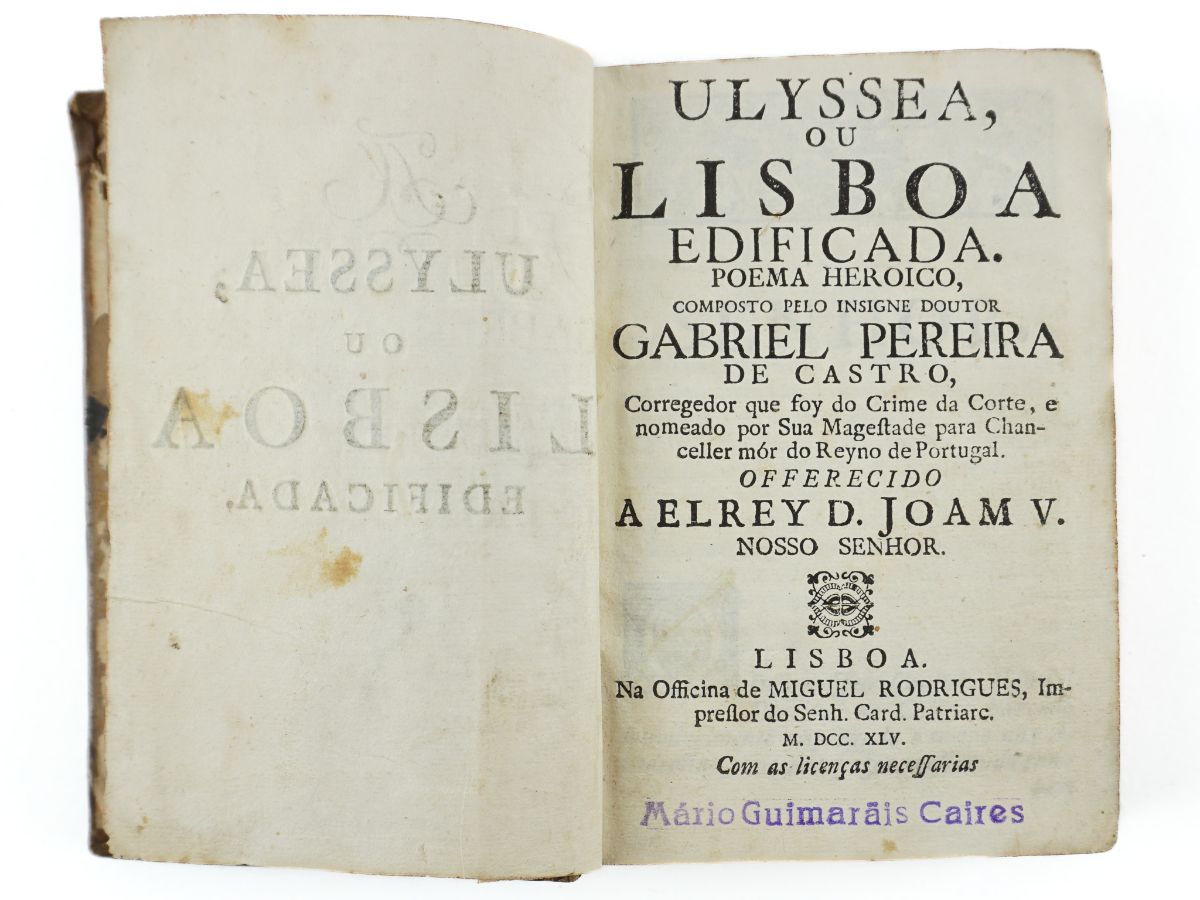 ULYSSEA,
OU
LISBOA
EDIFICADA.
ULYSSEA,
OU
LISBOA
EDIFICADA.
POEMA HEROICO,
COMPOSTO PELO INSIGNE DOUTOR
GABRIEL PEREIRA
DE CASTRO,
Corregedor que foy do Crime da Corte, e
nomeado por Sua Mageſtade para Chan-
celler mór do Reyno de Portugal.
OFFERECIDO
A ELREY D. JOAM V.
NOSSO SENHOR.
LISBOA.
Na Officina de MIGUEL RODRIGUES, Im-
preſſor do Senh. Card. Patriarc.
M. DCC. XLV.
Com as licenças neceſſarias
Mário Guimarãis Caires